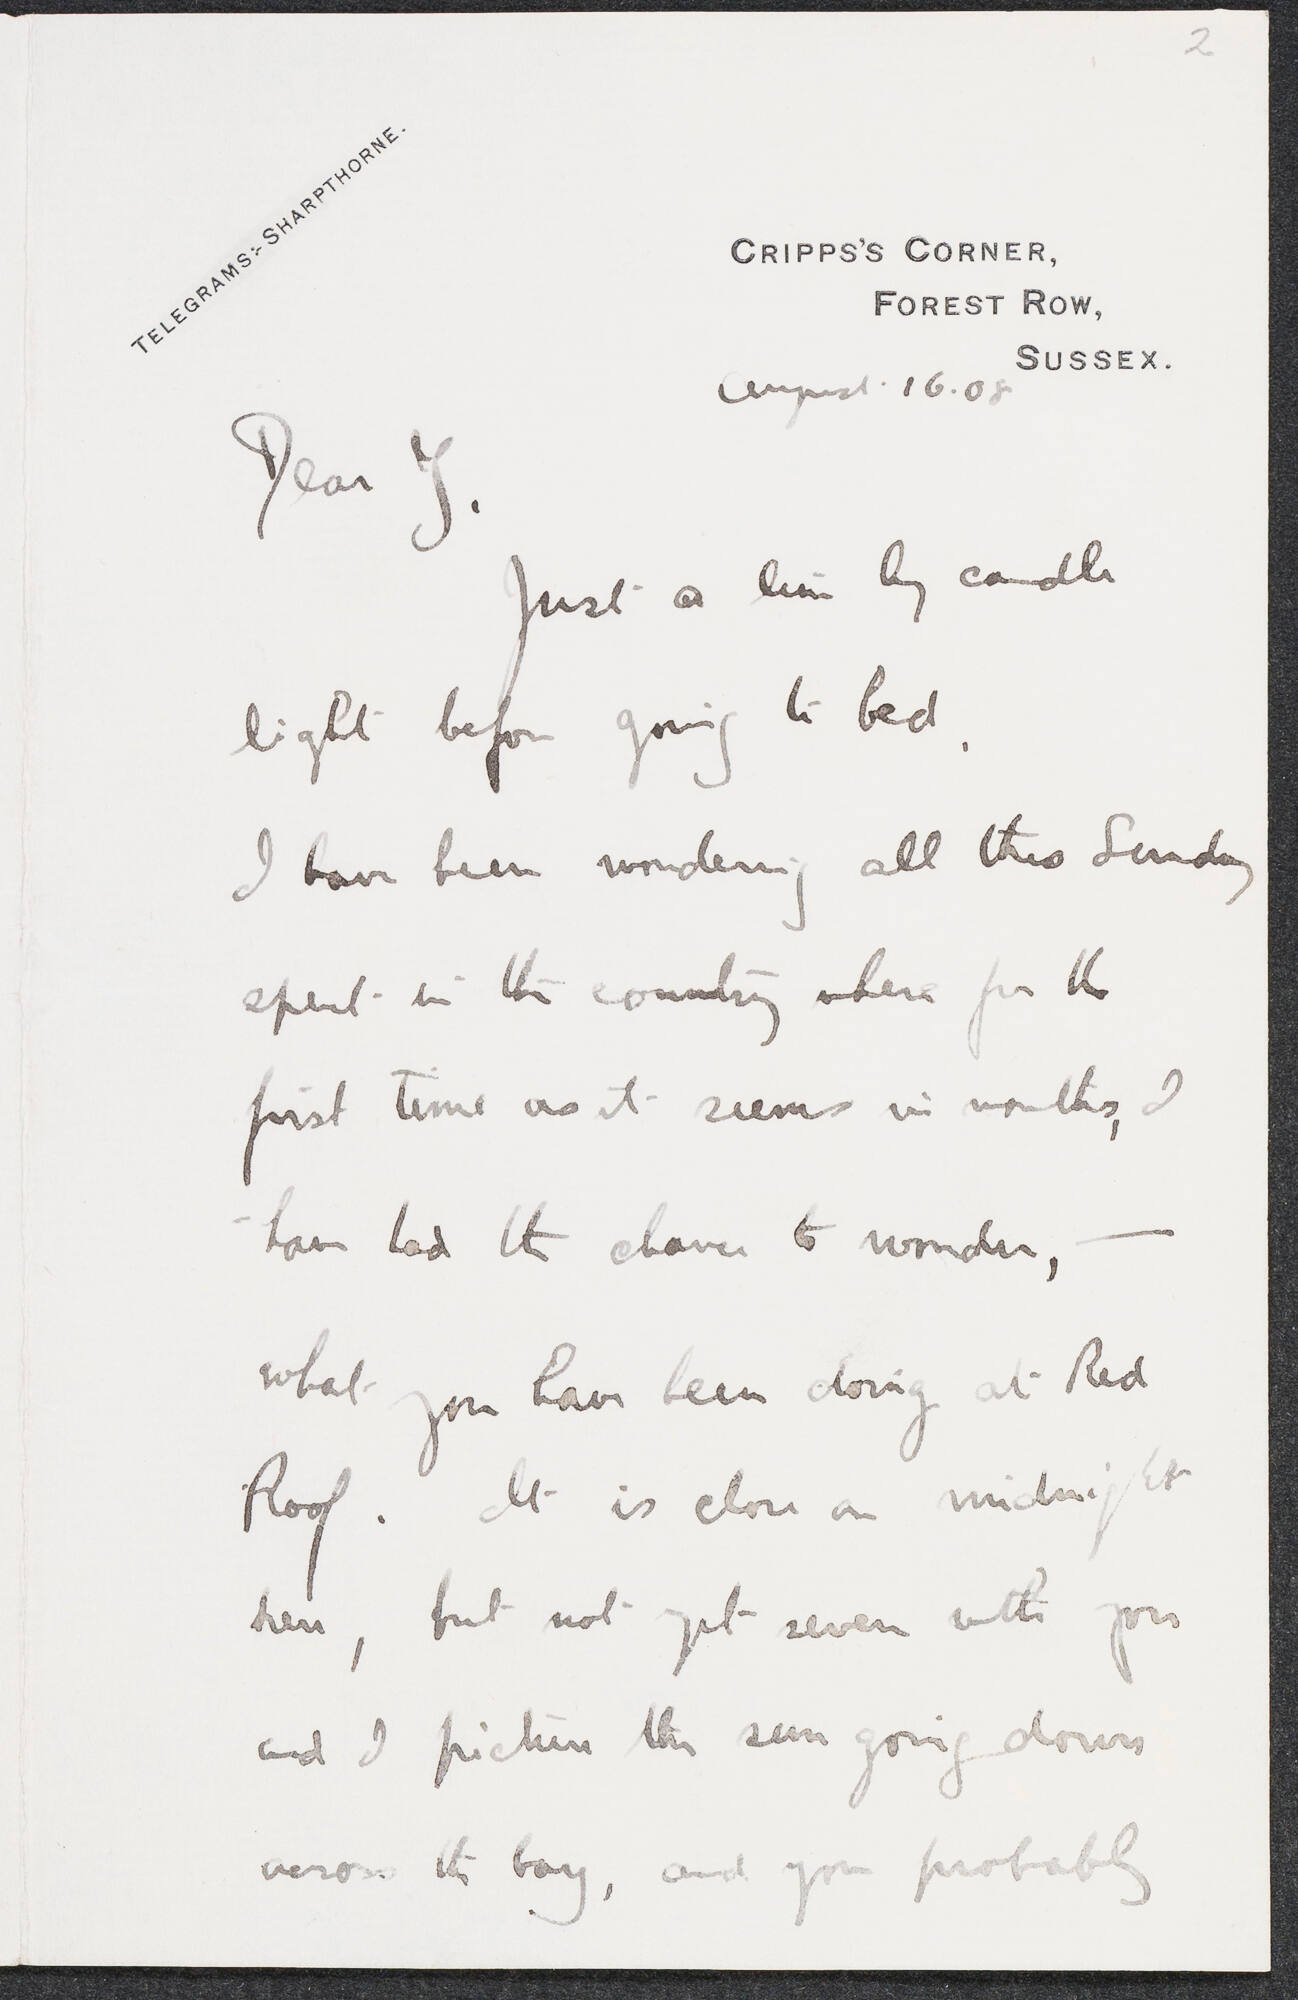 2
TELEGRAMS:- SHARPTHORNE.
CRIPPS'S CORNER,
FOREST ROW,
SUSSEX.
August. 16. 08
Dear Y.
Just a line by candle
light before going to bed.
I have been wondering all this Sunday
spent in the country where for the
first time as it seems in months, I
have had the chance to wonder, —
what you have been doing at Red
Roof. It is close on midnight
here, but not yet seven with you
and I picture the sun going down
across the bay, and you probably